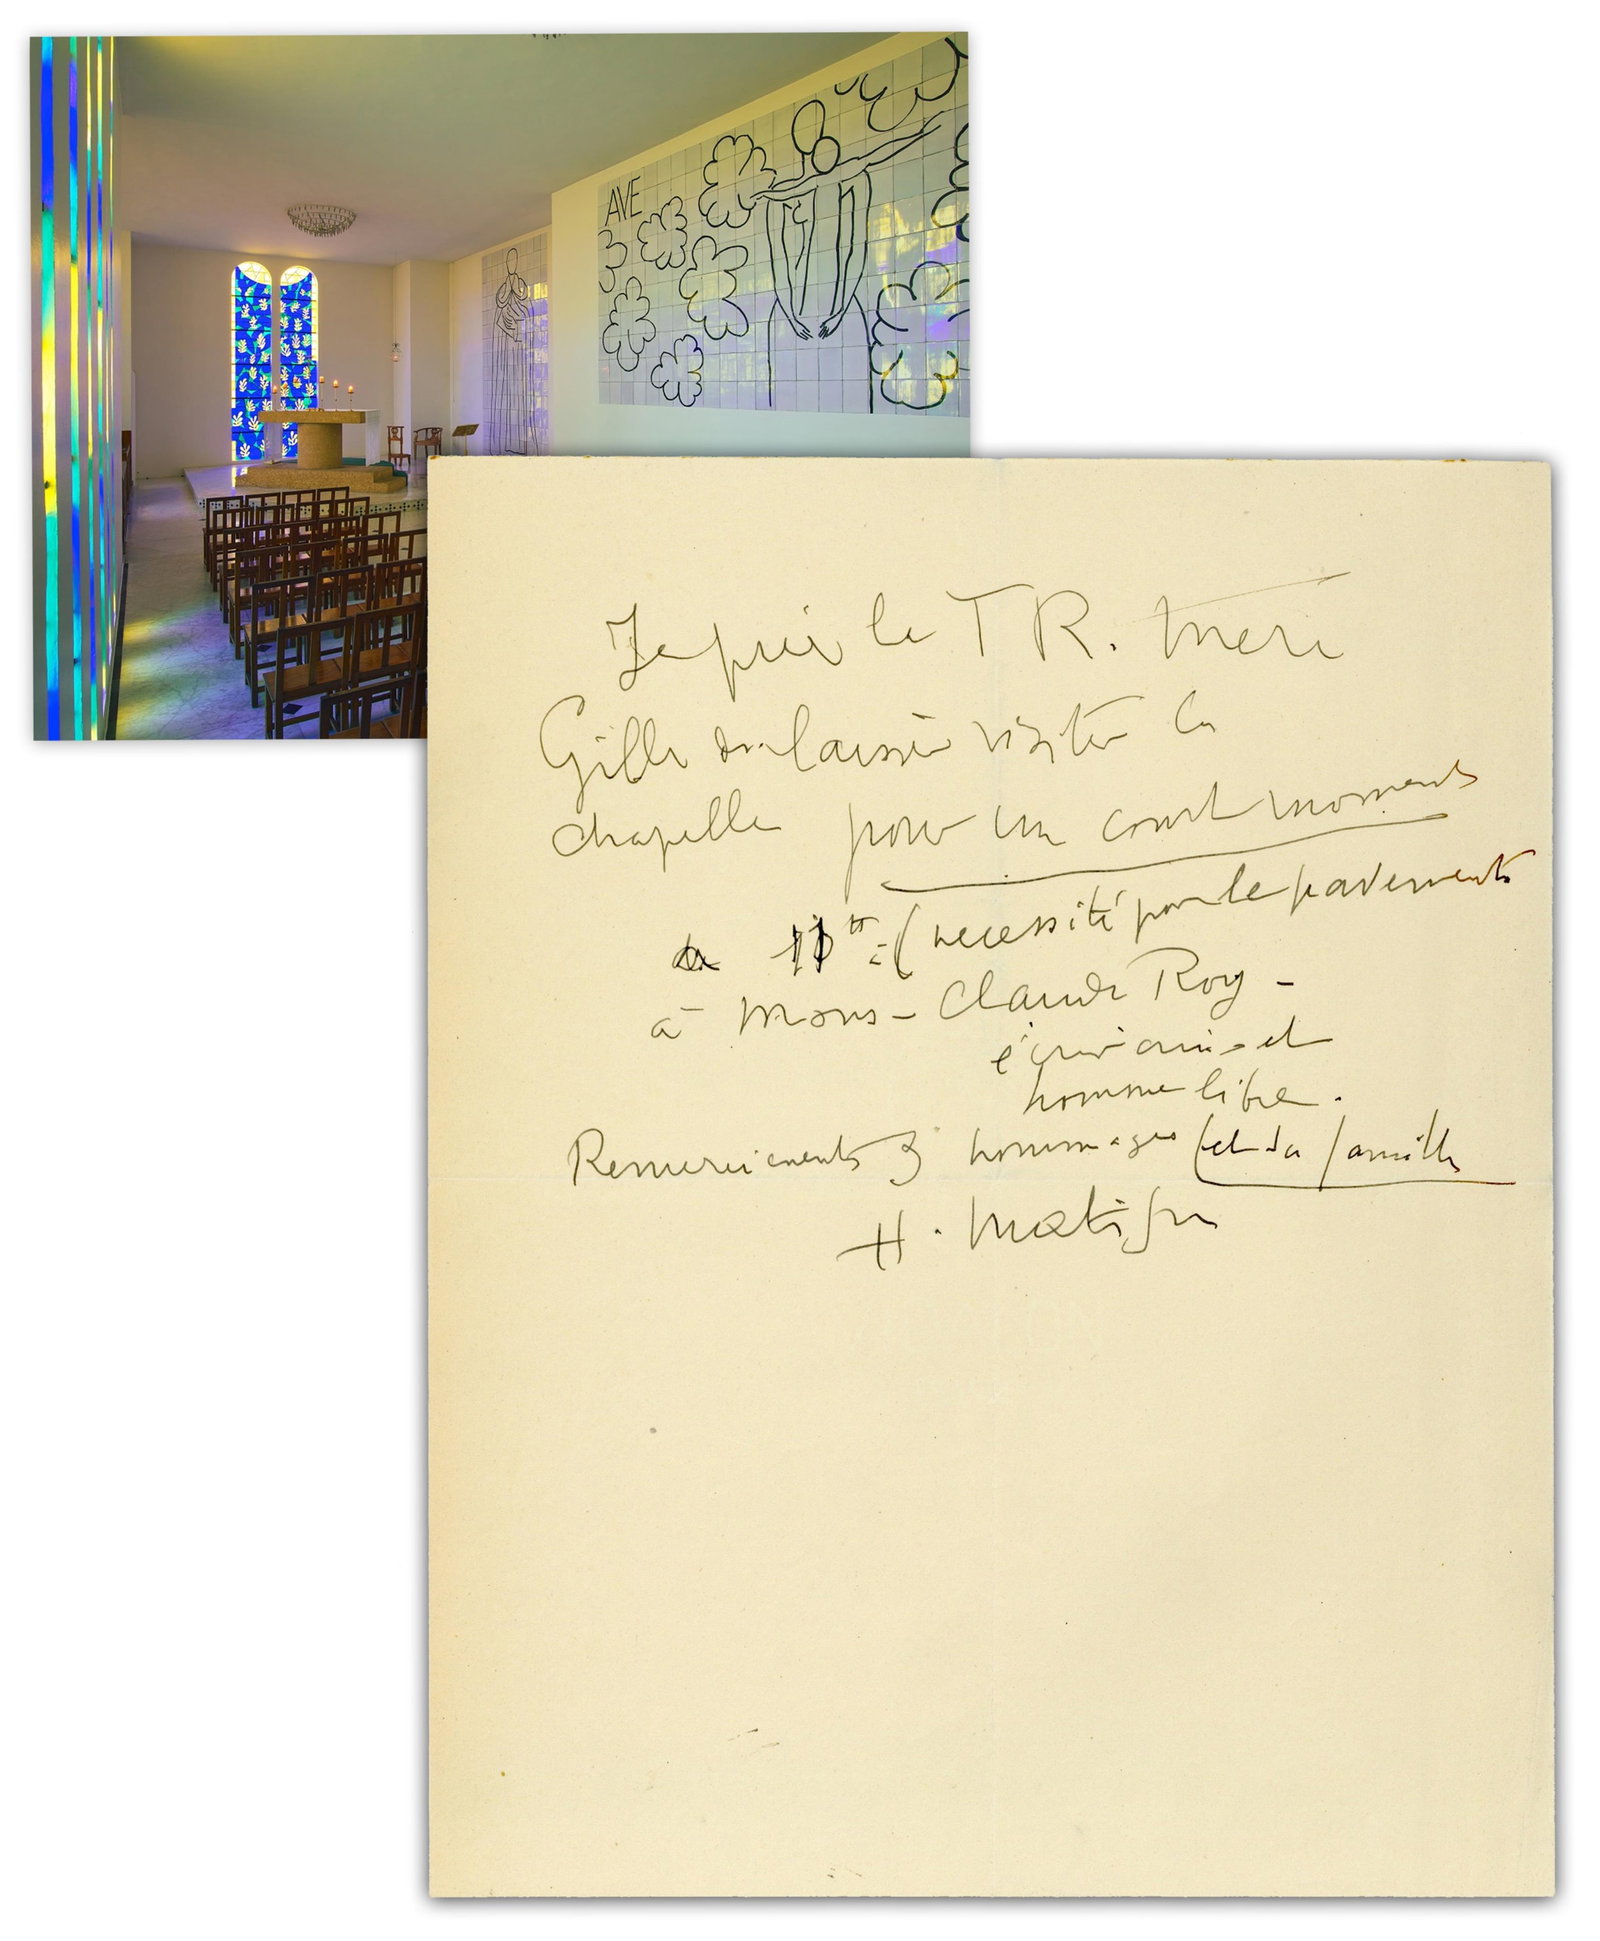 AVE
Je prie la T R. Mère
Gilles de laisser visiter la
chapelle pour un court moment
(nécessité par le pavement
à Mons - Claude Roy -
écrivain - et
homme libre.
Remerciements & hommages (et sa famille
H. Matisse